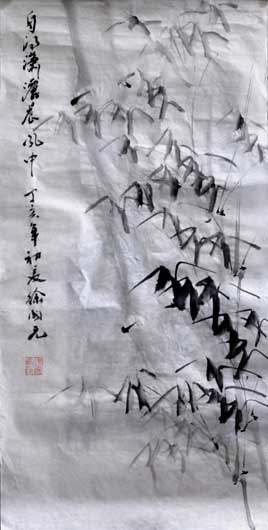 自得潇洒晨风中 丁亥年初夏徐国元